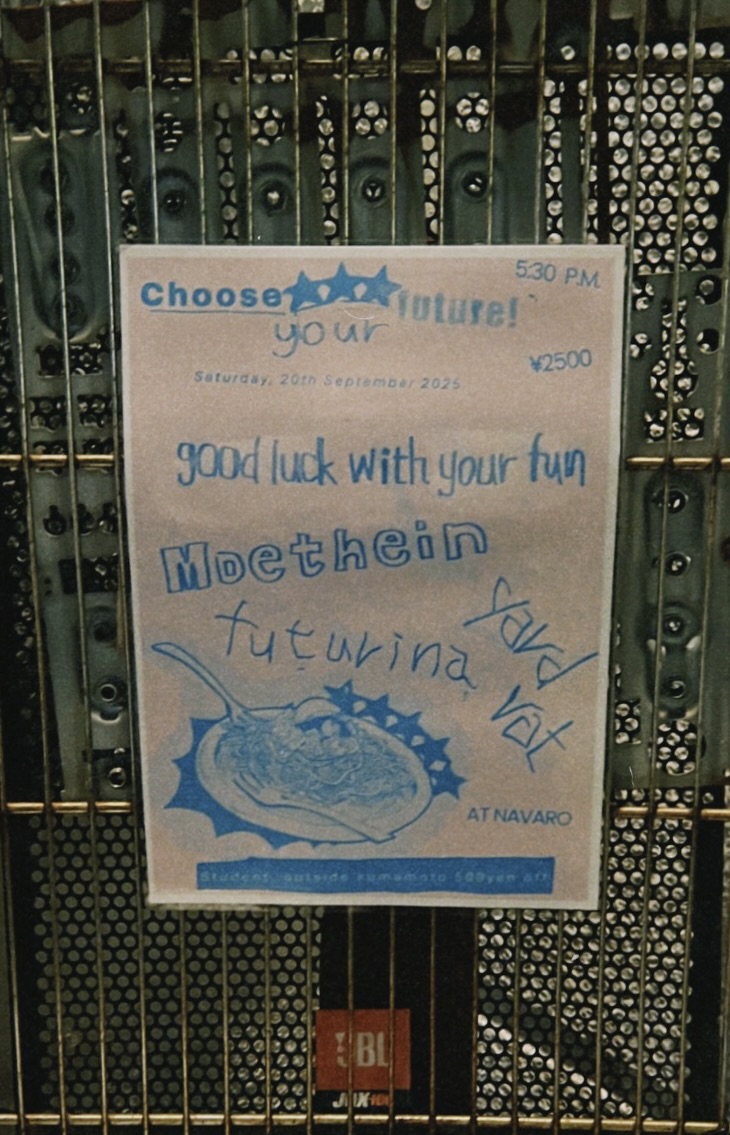 Choose future!
your
5:30 P.M.
¥2500
Saturday, 20th September 2025
good luck with your fun
Moethein
futurina
yard
rat
AT NAVARO
Student, outside kumamoto 500yen off
JBL